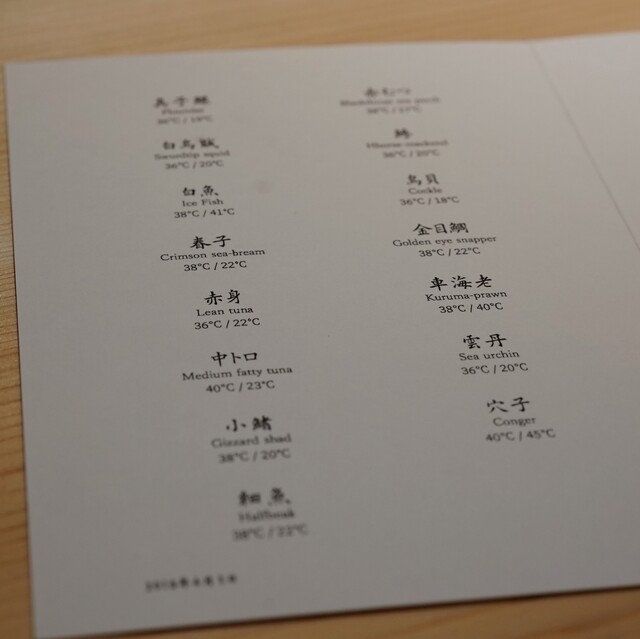 真子鰈
36°C / 19°C
白烏賊
Swordtip squid
36°C / 20°C
白魚
Ice Fish
38°C / 41°C
春子
Crimson sea-bream
38°C / 22°C
赤身
Lean tuna
36°C / 22°C
中トロ
Medium fatty tuna
40°C / 23°C
小鰭
Gizzard shad
38°C / 20°C
細魚
Halfbeak
38°C / 22°C
赤むつ
鯵
36°C / 20°C
鳥貝
Cockle
36°C / 18°C
金目鯛
Golden eye snapper
38°C / 22°C
車海老
Kuruma-prawn
38°C / 40°C
雲丹
Sea urchin
36°C / 20°C
穴子
Conger
40°C / 45°C